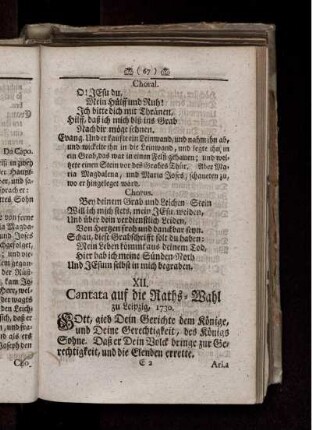 ( 67 )
Choral.
O! JEsu du,
Mein Hülff und Ruh!
Ich bitte dich mit Thränen,
Hilff, daß ich mich biß ins Grab
Nach dir möge sehnen.
Evang. Und er kauffte ein Leinwand, und nahm ihn ab,
und wickelte ihn in die Leinwand, und legte ihn in
ein Grab, das war in einen Felß gehauen; und wel-
tzete einen Stein vor des Grabes Thür. Aber Ma-
ria Magdalena, und Maria Joses, schaueten zu,
wo er hingeleget ward.
Chorus.
Bey deinem Grab und Leichen-Stein
Will ich mich stets, mein JEsu, weiden,
Und über dein verdienstlich Leiden,
Von Hertzen froh und danckbar seyn.
Schau, diese Grabschrifft solt du haben:
Mein Leben kömmt aus deinem Tod,
Hier hab ich meine Sünden-Noth
Und JEsum selbst in mich begraben.
XII.
Cantata auf die Raths-Wahl
zu Leipzig, 1730.
GOtt, gieb Dein Gerichte dem Könige,
und Deine Gerechtigkeit, des Königs
Sohne. Daß er Dein Volck bringe zur Ge-
rechtigkeit, und die Elenden errette.
E 2 Aria